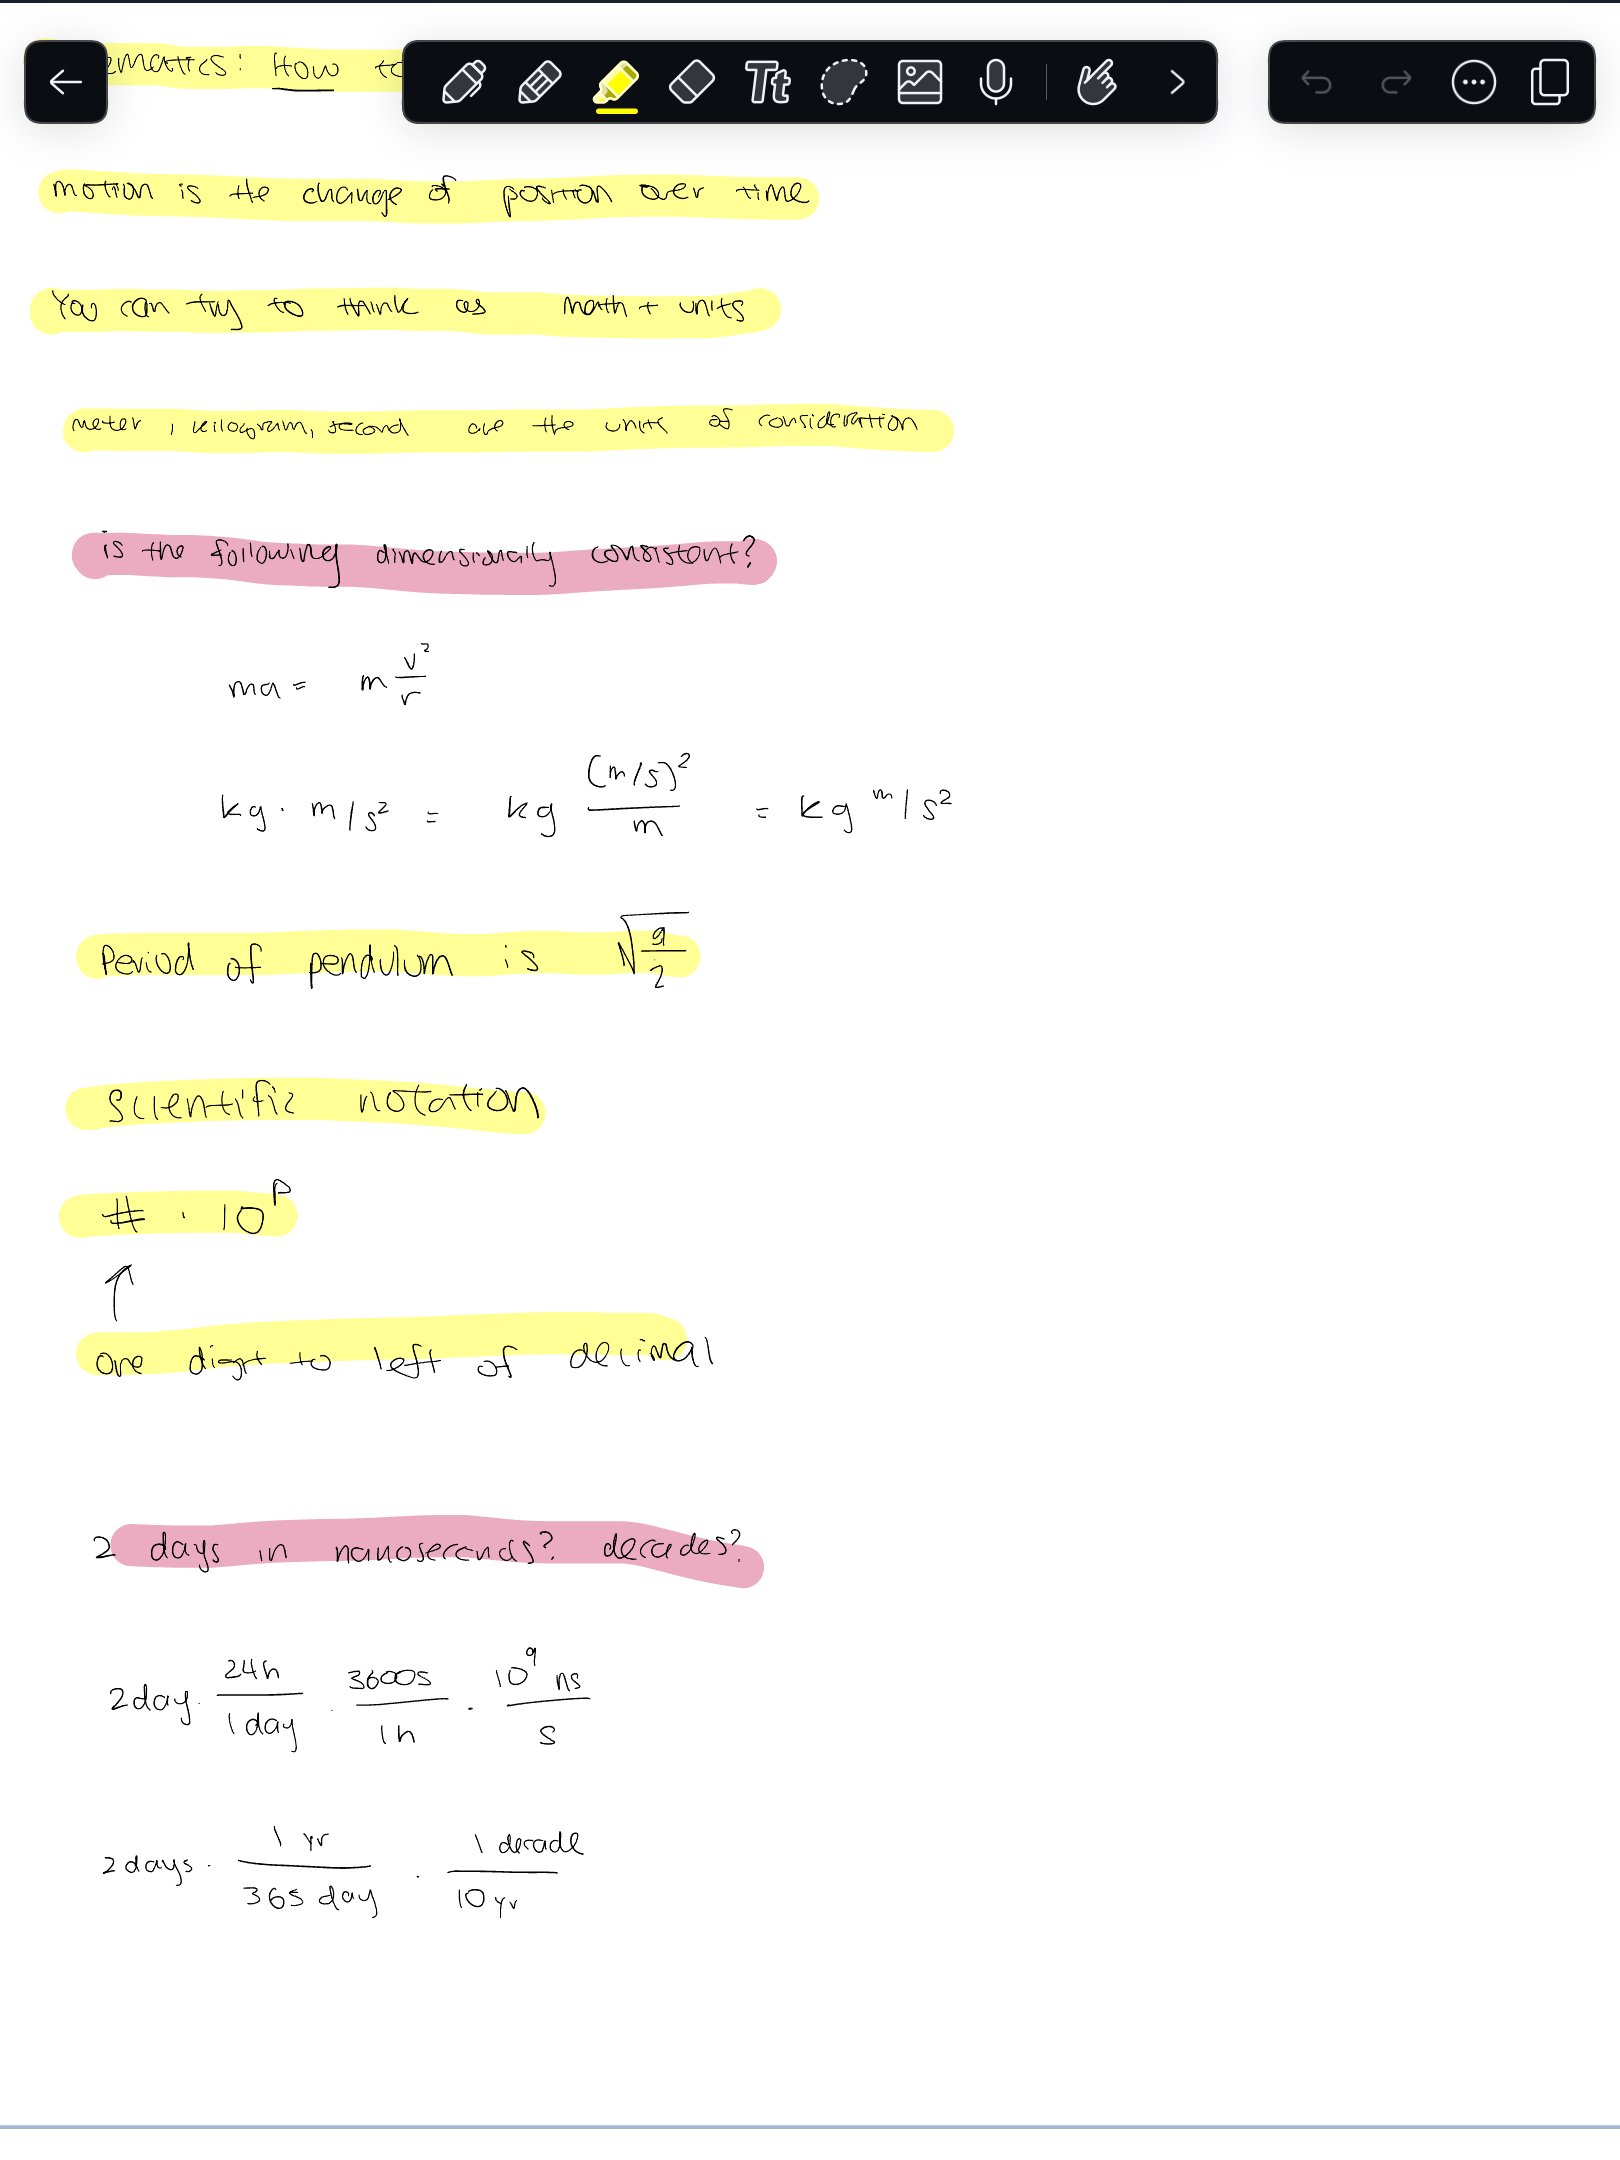 ematics: How to
Tt
motion is the change of position over time
You can try to think as math + units
meter, kilogram, second are the units of consideration
is the following dimensionally consistent?
ma = m v²/r
kg · m/s² = kg (m/s)²/m = kg m/s²
Period of pendulum is √(g/2)
Scientific notation
# · 10^p
↑
one digit to left of decimal
2 days in nanoseconds? decades?
2 day · 24h/1 day · 3600s/1h · 10⁹ ns/s
2 days · 1 yr/365 day · 1 decade/10 yr